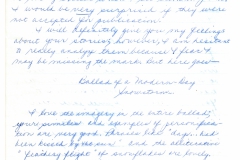 I would be very surprised if they were
not accepted for publication.
I will definitely give you my feelings
about your stories; however, I am hesitant
to really analyze them because I fear I
may be missing the mark but here goes—
Ballad of a Modern-Day
I love the imagery in the entire ballad;
your similes and examples of personifica-
tion are very good. Phrases like "days had
been kissed by" and the alliteration
"feathery flight" of snowflakes are lovely.